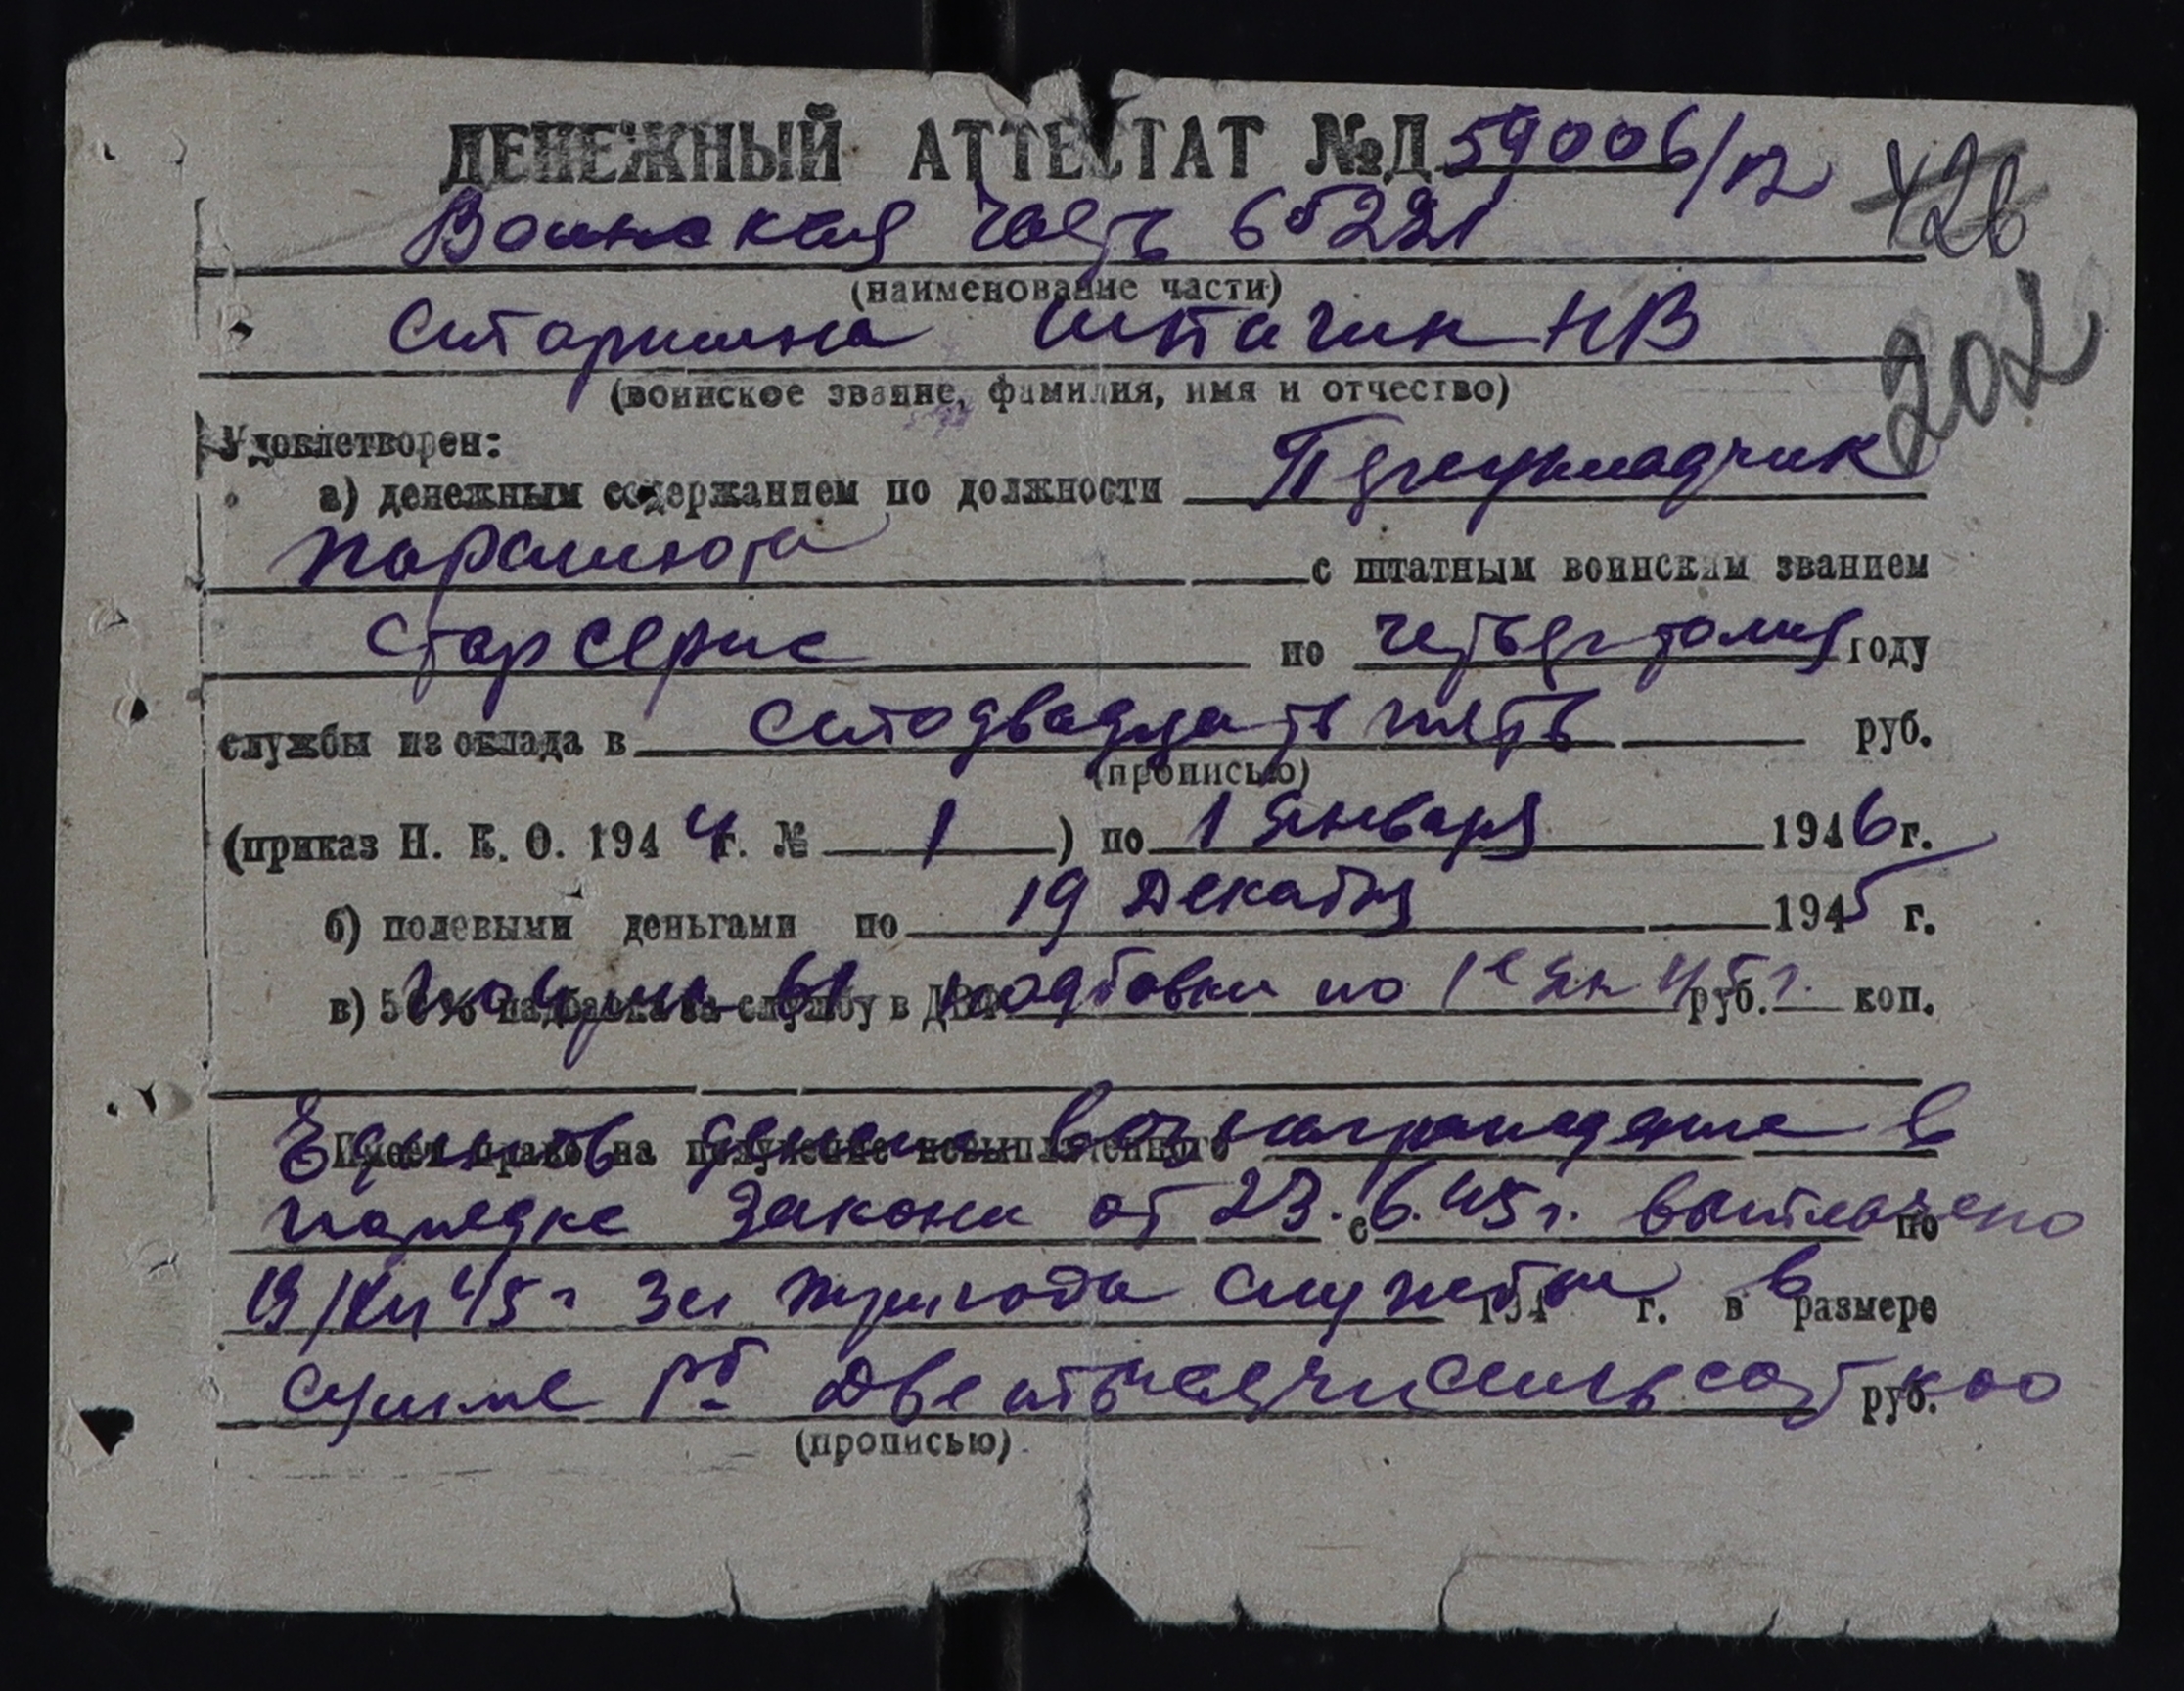 ДЕНЕЖНЫЙ АТТЕСТАТ №Д 59006/12
426
Воинская часть 65221
(наименование части)
202
Старшина Шпагин НВ
(воинское звание, фамилия, имя и отчество)
Удовлетворен:
а) денежным содержанием по должности
парашюта с штатным воинским званием
Стар серж по году
службы из оклада в Сто двадцать пять руб.
(прописью)
(приказ Н. К. О. 1944 г. № 1) по 1 Января 1946 г.
б) полевыми деньгами по 19 Декабря 1945 г.
в) 50% надбавка за службу в ДВФ по 1е Ян 45 г. руб. коп.
Имеет право на получение невыплаченного
Един вознаграждение в
порядке Закона от 23.6.45 г. выплачено
с по
19/XII 45 г За три года службы в
194 г. в размере
сумме Две тысячи семьсот руб. к 00
(прописью)